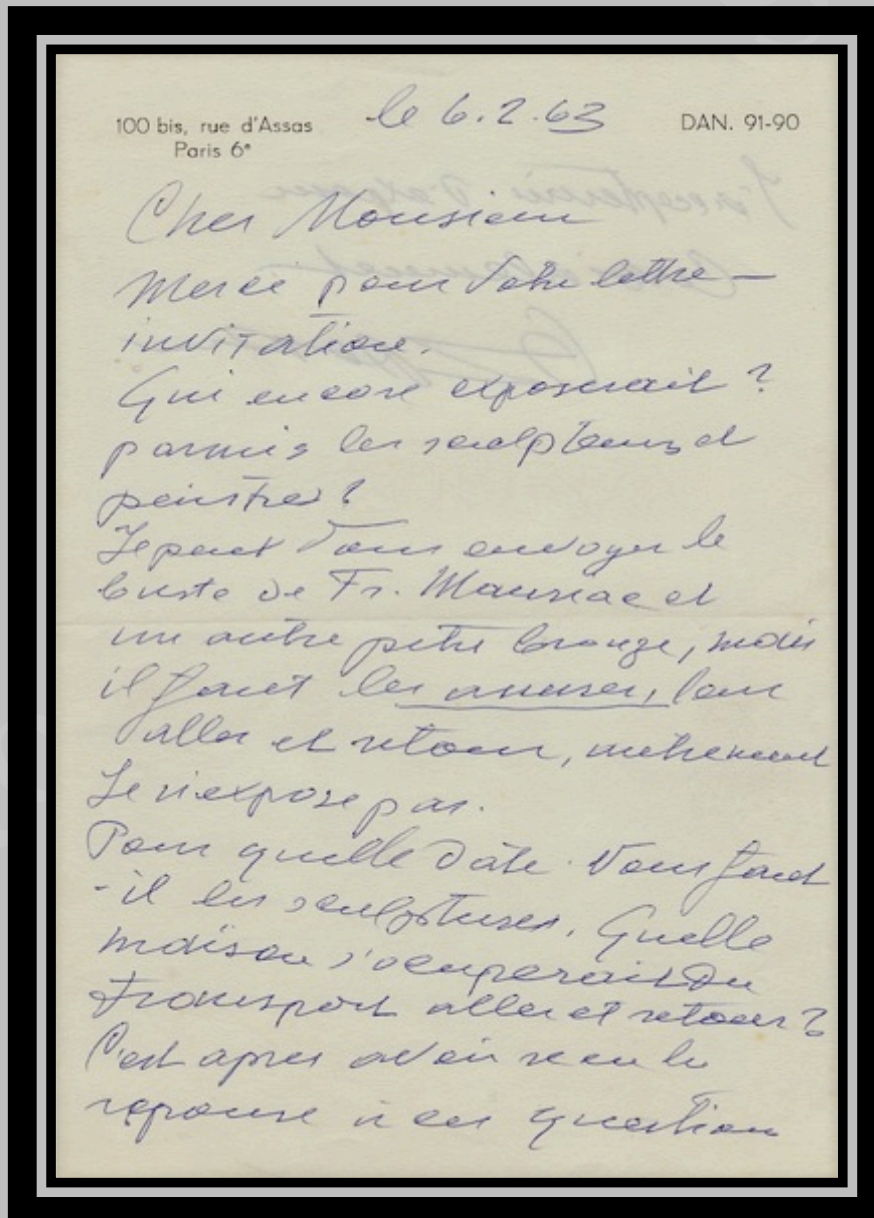 100 bis, rue d'Assas
Paris 6e
le 6.2.63
DAN. 91-90
Cher Monsieur
Merci pour votre lettre –
invitation.
Qui encore exposerait ?
parmis les sculpteurs et
peintres ?
Je peut vous envoyer le
buste de Fr. Mauriac et
un autre petit bronze, mais
il faut les assurer, pour
aller et retour, autrement
Je n'expose pas.
Pour quelle date vous faut
-il les sculptures. Quelle
maison s'occuperait du
transport aller et retour ?
C'est apres avoir recu la
reponse à ces question
J'accepterai d'exposer